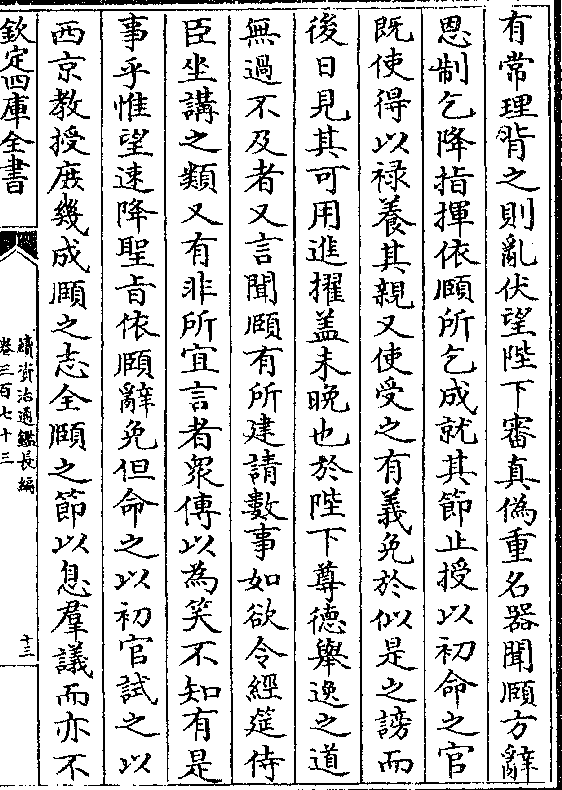 有常理背之則亂伏望陛下審真偽重名器聞頤方辭
恩制乞降指揮依頤所乞成就其節止授以初命之官
既使得以祿養其親又使受之有義免於似是之謗而
後日見其可用進擢蓋未晚也於陛下尊德舉逸之道
無過不及者又言聞頤有所建請數事如欲令經筵侍
臣坐講之類又有非所宜言者衆傳以為笑不知有是
事乎惟望速降聖旨依頤辭免但命之以初官試之以
西京教授庻幾成頤之志全頤之節以息羣議而亦不
欽定四庫全書
續資治通鑑長編
卷三百七十三
十三